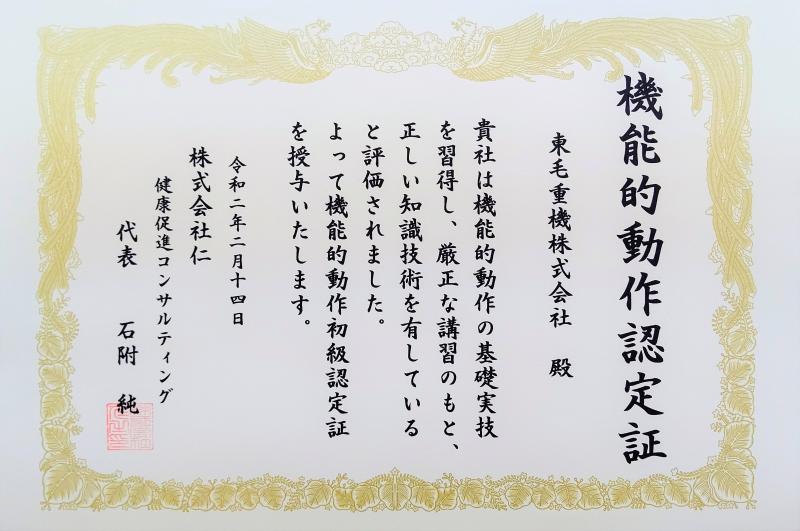 機能的動作認定証
東毛重機株式会社 殿
貴社は機能的動作の基礎実技
を習得し、厳正な講習のもと、
正しい知識技術を有している
と評価されました。
よって機能的動作初級認定証
を授与いたします。
令和二年二月十四日
株式会社仁
健康促進コンサルティング
代表 石附 純